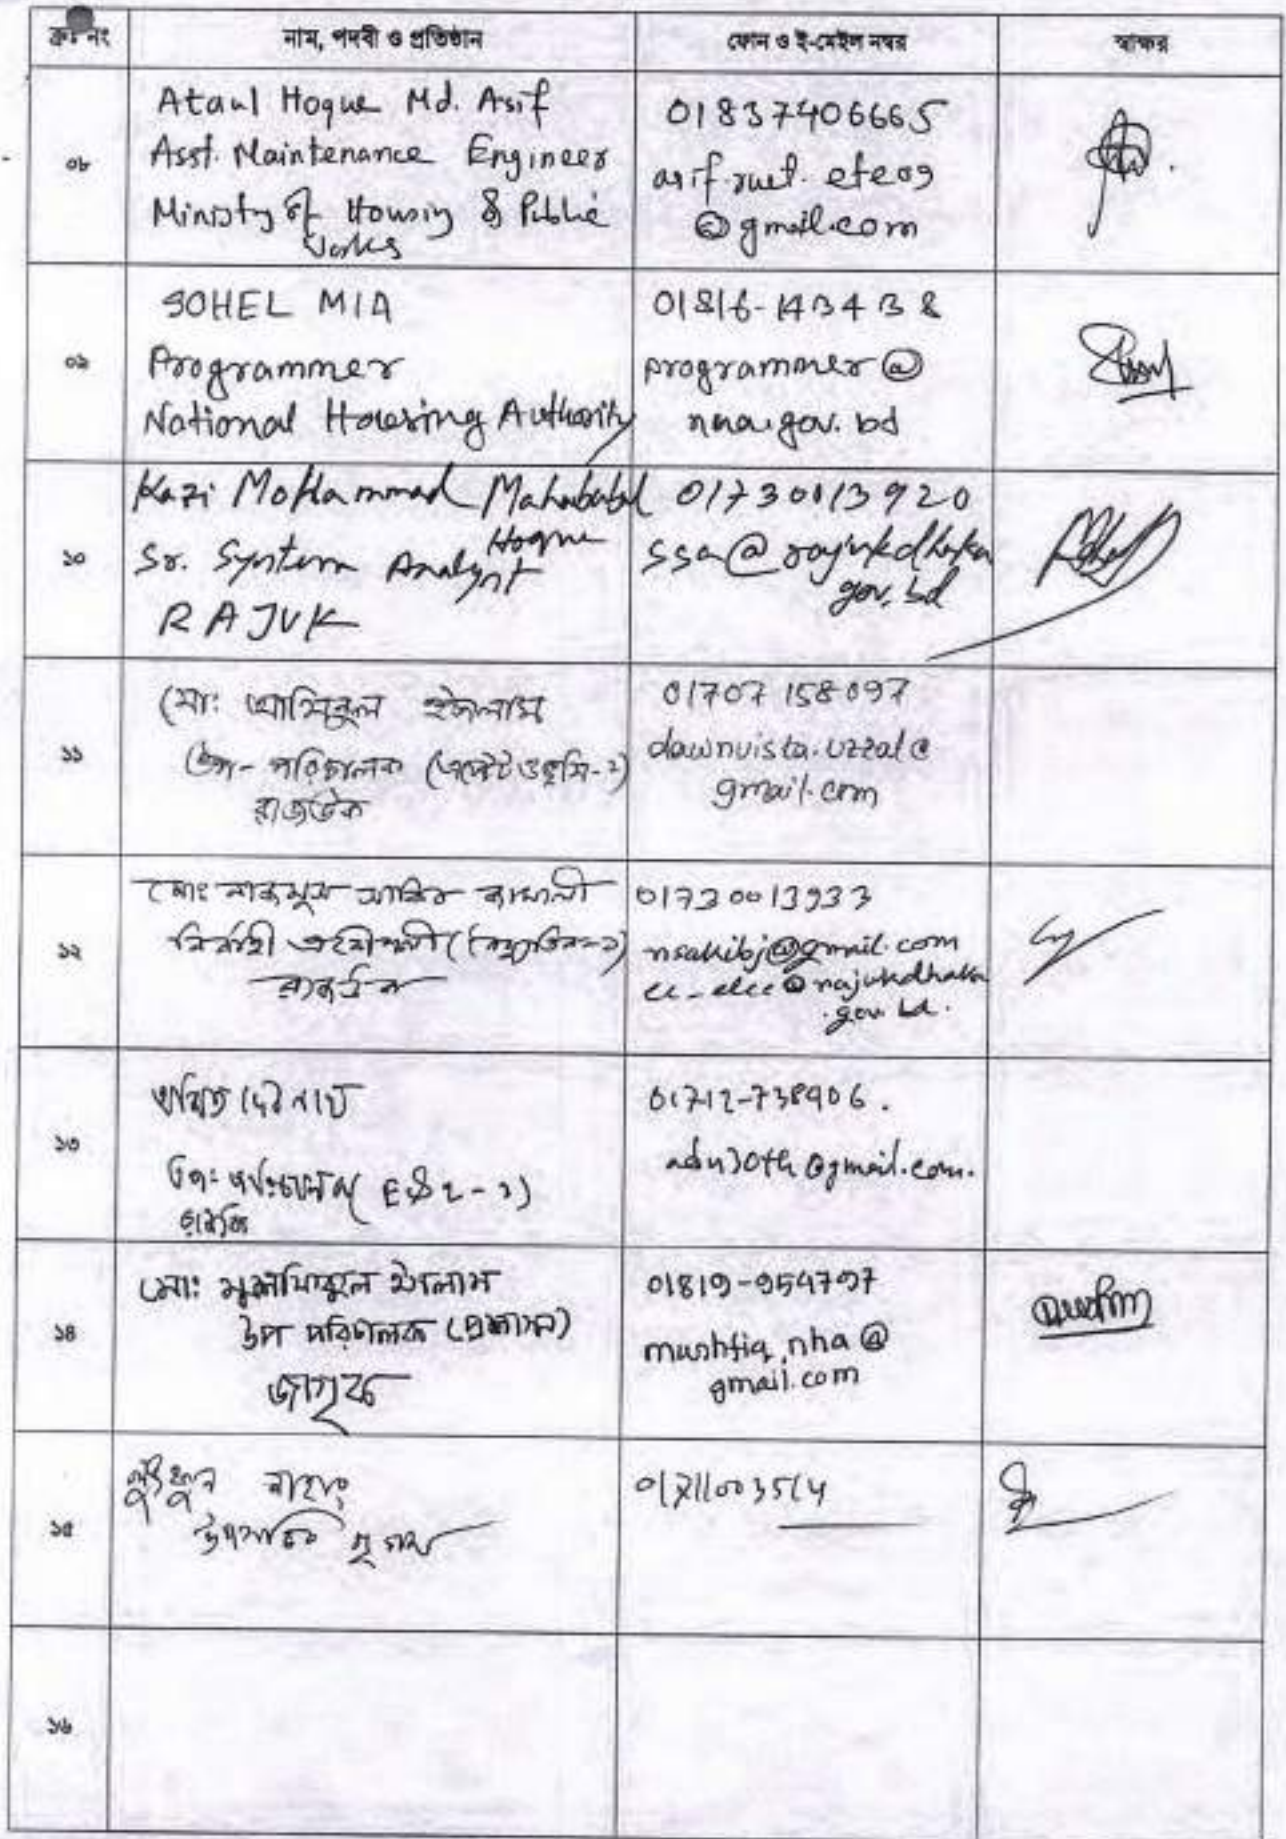 ক্রঃ নং নাম, পদবী ও প্রতিষ্ঠান ফোন ও ই-মেইল নম্বর স্বাক্ষর
০৮
Ataul Hoque Md. Asif
Asst. Maintenance Engineer
Ministry of Housing & Public
Works
01837406665
arif.ruet.ete09
@gmail.com
০৯
SOHEL MIA
Programmer
National Housing Authority
01816-143438
programmer@
nha.gov.bd
১০
Kazi Mohammad Mahabubul
Hoque
Sr. System Analyst
RAJUK
01730013920
ssa@rajukdhaka
gov.bd
১১
মোঃ আমিনুল ইসলাম
উপ-পরিচালক (এস্টেট ও ভূমি-২)
রাজউক
01707158097
dawnvista.uzzal@
gmail.com
১২
মোঃ সাকিব জামালী
নির্বাহী প্রকৌশলী
রাজউক
01730013933
nsakibj@gmail.com
ee_elec@rajukdhaka
.gov.bd.
১৩
অমিত দেবনাথ
উপ-পরিচালক (E&L-১)
রাজউক
01712-738906.
@gmail.com.
১৪
মোঃ মুশফিকুল ইসলাম
উপ পরিচালক (প্রশাসন)
জাগৃক
01819-954797
mushfiq.nha@
gmail.com
১৫
নাহার
উপসচিব
01711003514
১৬